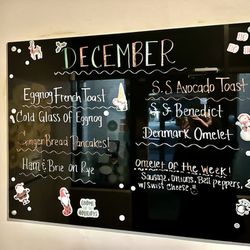 DECEMBER
Eggnog French Toast
Cold Glass Of Eggnog
Ginger Bread Pancakes!
Ham & Brie on Rye
S.S Avocado Toast
S.S Benedict
Denmark Omelet
Omelet Of The Week!
Sausage, Onions, Bell peppers,
w/ Swist cheese